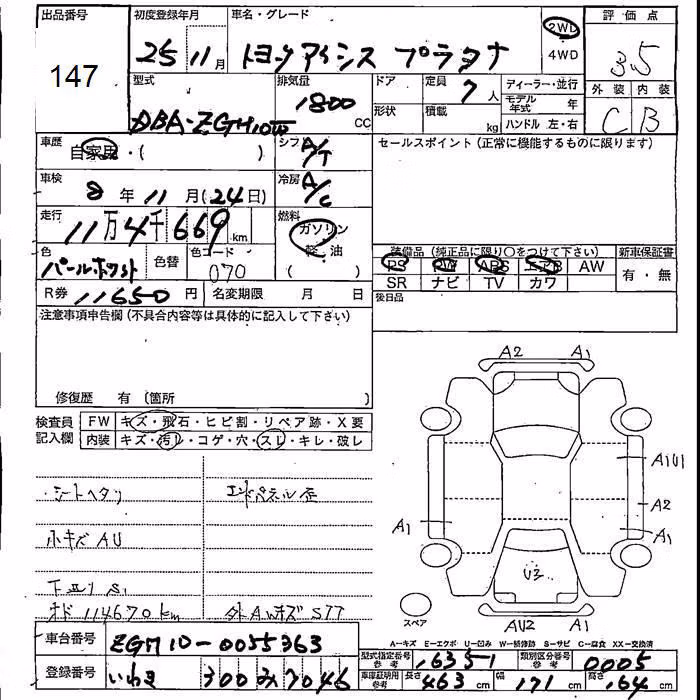 出品番号 初度登録年月 車名・グレード 2WD 評価点
147 25 11月 トヨタアイシス プラタナ 4WD 3.5
型式 排気量 ドア 定員 7人 ディーラー・並行 外装 内装
DBA-ZGM10W 1800 CC 形状 積載 kg モデル年式 年 C B
ハンドル 左・右
車歴 自家用・( ) シフト A/T セールスポイント(正常に機能するものに限ります)
車検 8年 11月(24日) 冷房 A/C
走行 11万4千669km 燃料 ガソリン
軽油
色 パールホワイト 色替 色コード 070 ( ) 装備品(純正品に限り○をつけて下さい) 新車保証書
PS PW ABS エアB AW 有・無
R券 11650円 名変期限 月 日 SR ナビ TV カワ
後日品
注意事項申告欄(不具合内容等は具体的に記入して下さい)
修復歴 有(箇所 )
検査員記入欄 FW キズ・飛石・ヒビ割・リペア跡・X要
内装 キズ・汚レ・コゲ・穴・スレ・キレ・破レ
A2 A1
A1U1
A2
A1 A1
U3
AU2 A1
スペア
シートヘタリ エンドパネル歪
小キズAU
下廻りS1
オド 114670km 外AWキズSTT
A-キズ E-エクボ U-凹み W-補修跡 S-サビ C-腐食 XX-交換済
車台番号 ZGM10-0055363 型式指定番号参考 16351 類別区分番号参考 0005
登録番号 いわき 300 み 7046 車庫証明用参考 長さ 463cm 幅 171cm 高さ 164cm